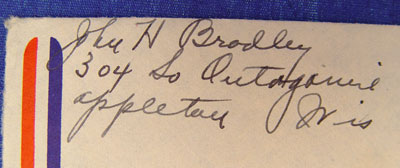 John H Bradley
304 So Outagamie
appleton Wis